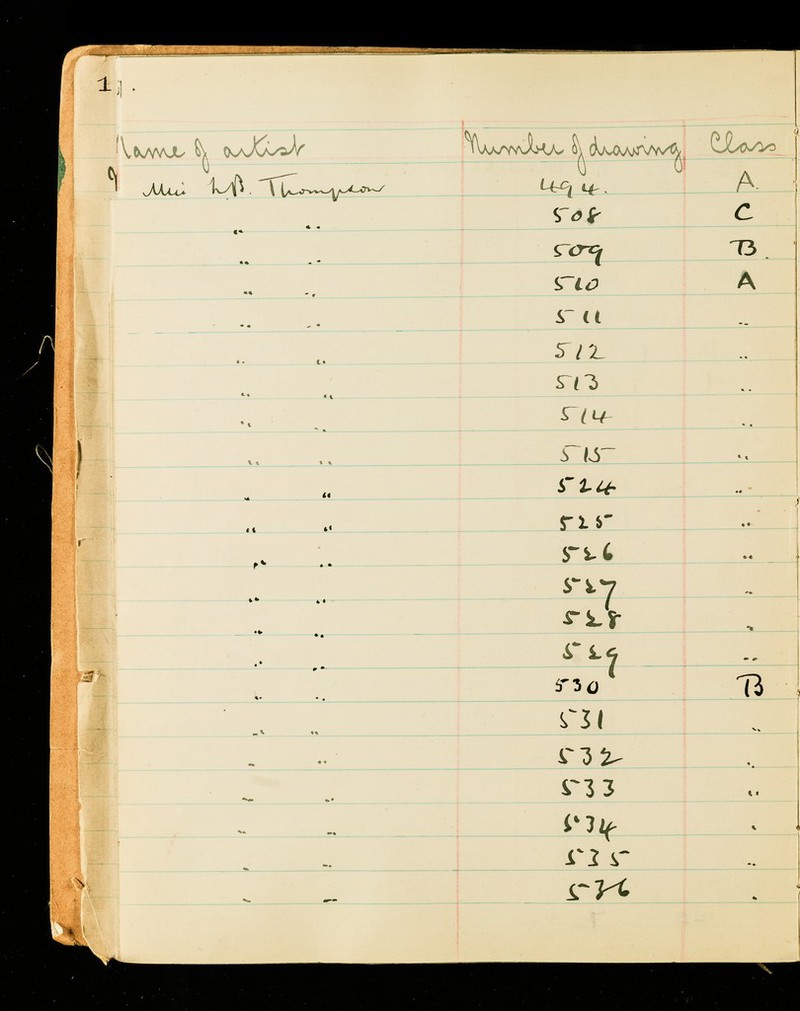 1
Name of artist Number of drawing Class
Miss Thompson 494. A.
" " 508 C
" " 509 B.
" " 510 A
" " 511 "
" " 512 "
" " 513 "
" " 514 "
" " 515 "
" " 524 "
" " 525 "
" " 526 "
" " 527 "
" " 528 "
" " 529 "
" " 530 B
" " 531 "
" " 532 "
" " 533 "
" " 534 "
" " 535 "
" " 536 "